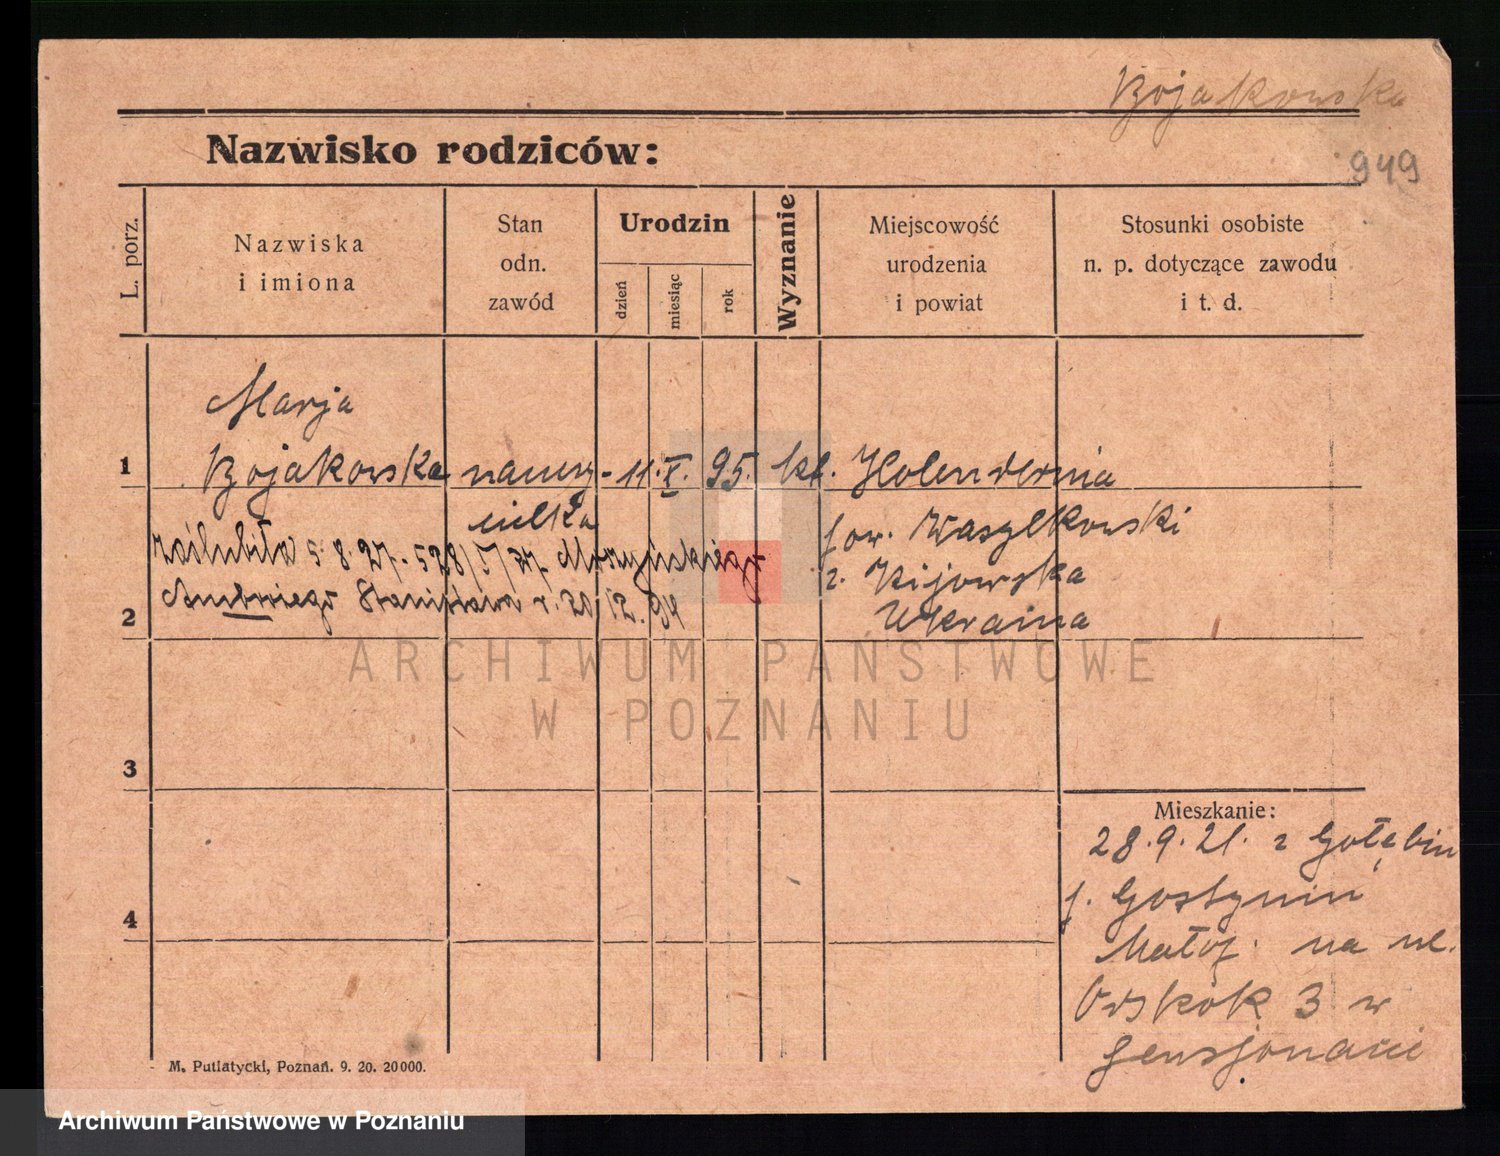 Bojakowska
949
Nazwisko rodziców:
L. porz.
Nazwiska
i imiona
Stan
odn.
zawód
Urodzin
dzień
miesiąc
rok
Wyznanie
Miejscowość
urodzenia
i powiat
Stosunki osobiste
n. p. dotyczące zawodu
i t. d.
Marja
1 Bojakowska nauczy- 11. X. 95. kt. Holendernia
cielka
pow. Wasylkowski
zaślubiła 5.8.27. 528/ /27 Moszyńskiego
z. Kijowska
Stanisława r. 20/12.94
2
Ukraina
ARCHIWUM PAŃSTWOWE
W POZNANIU
3
Mieszkanie:
28.9.21. z Gołębin
p. Gostynin
4
Małop. na ul.
3 w
pensjonacie
M. Putiatycki, Poznań. 9. 20. 20000.
Archiwum Państwowe w Poznaniu